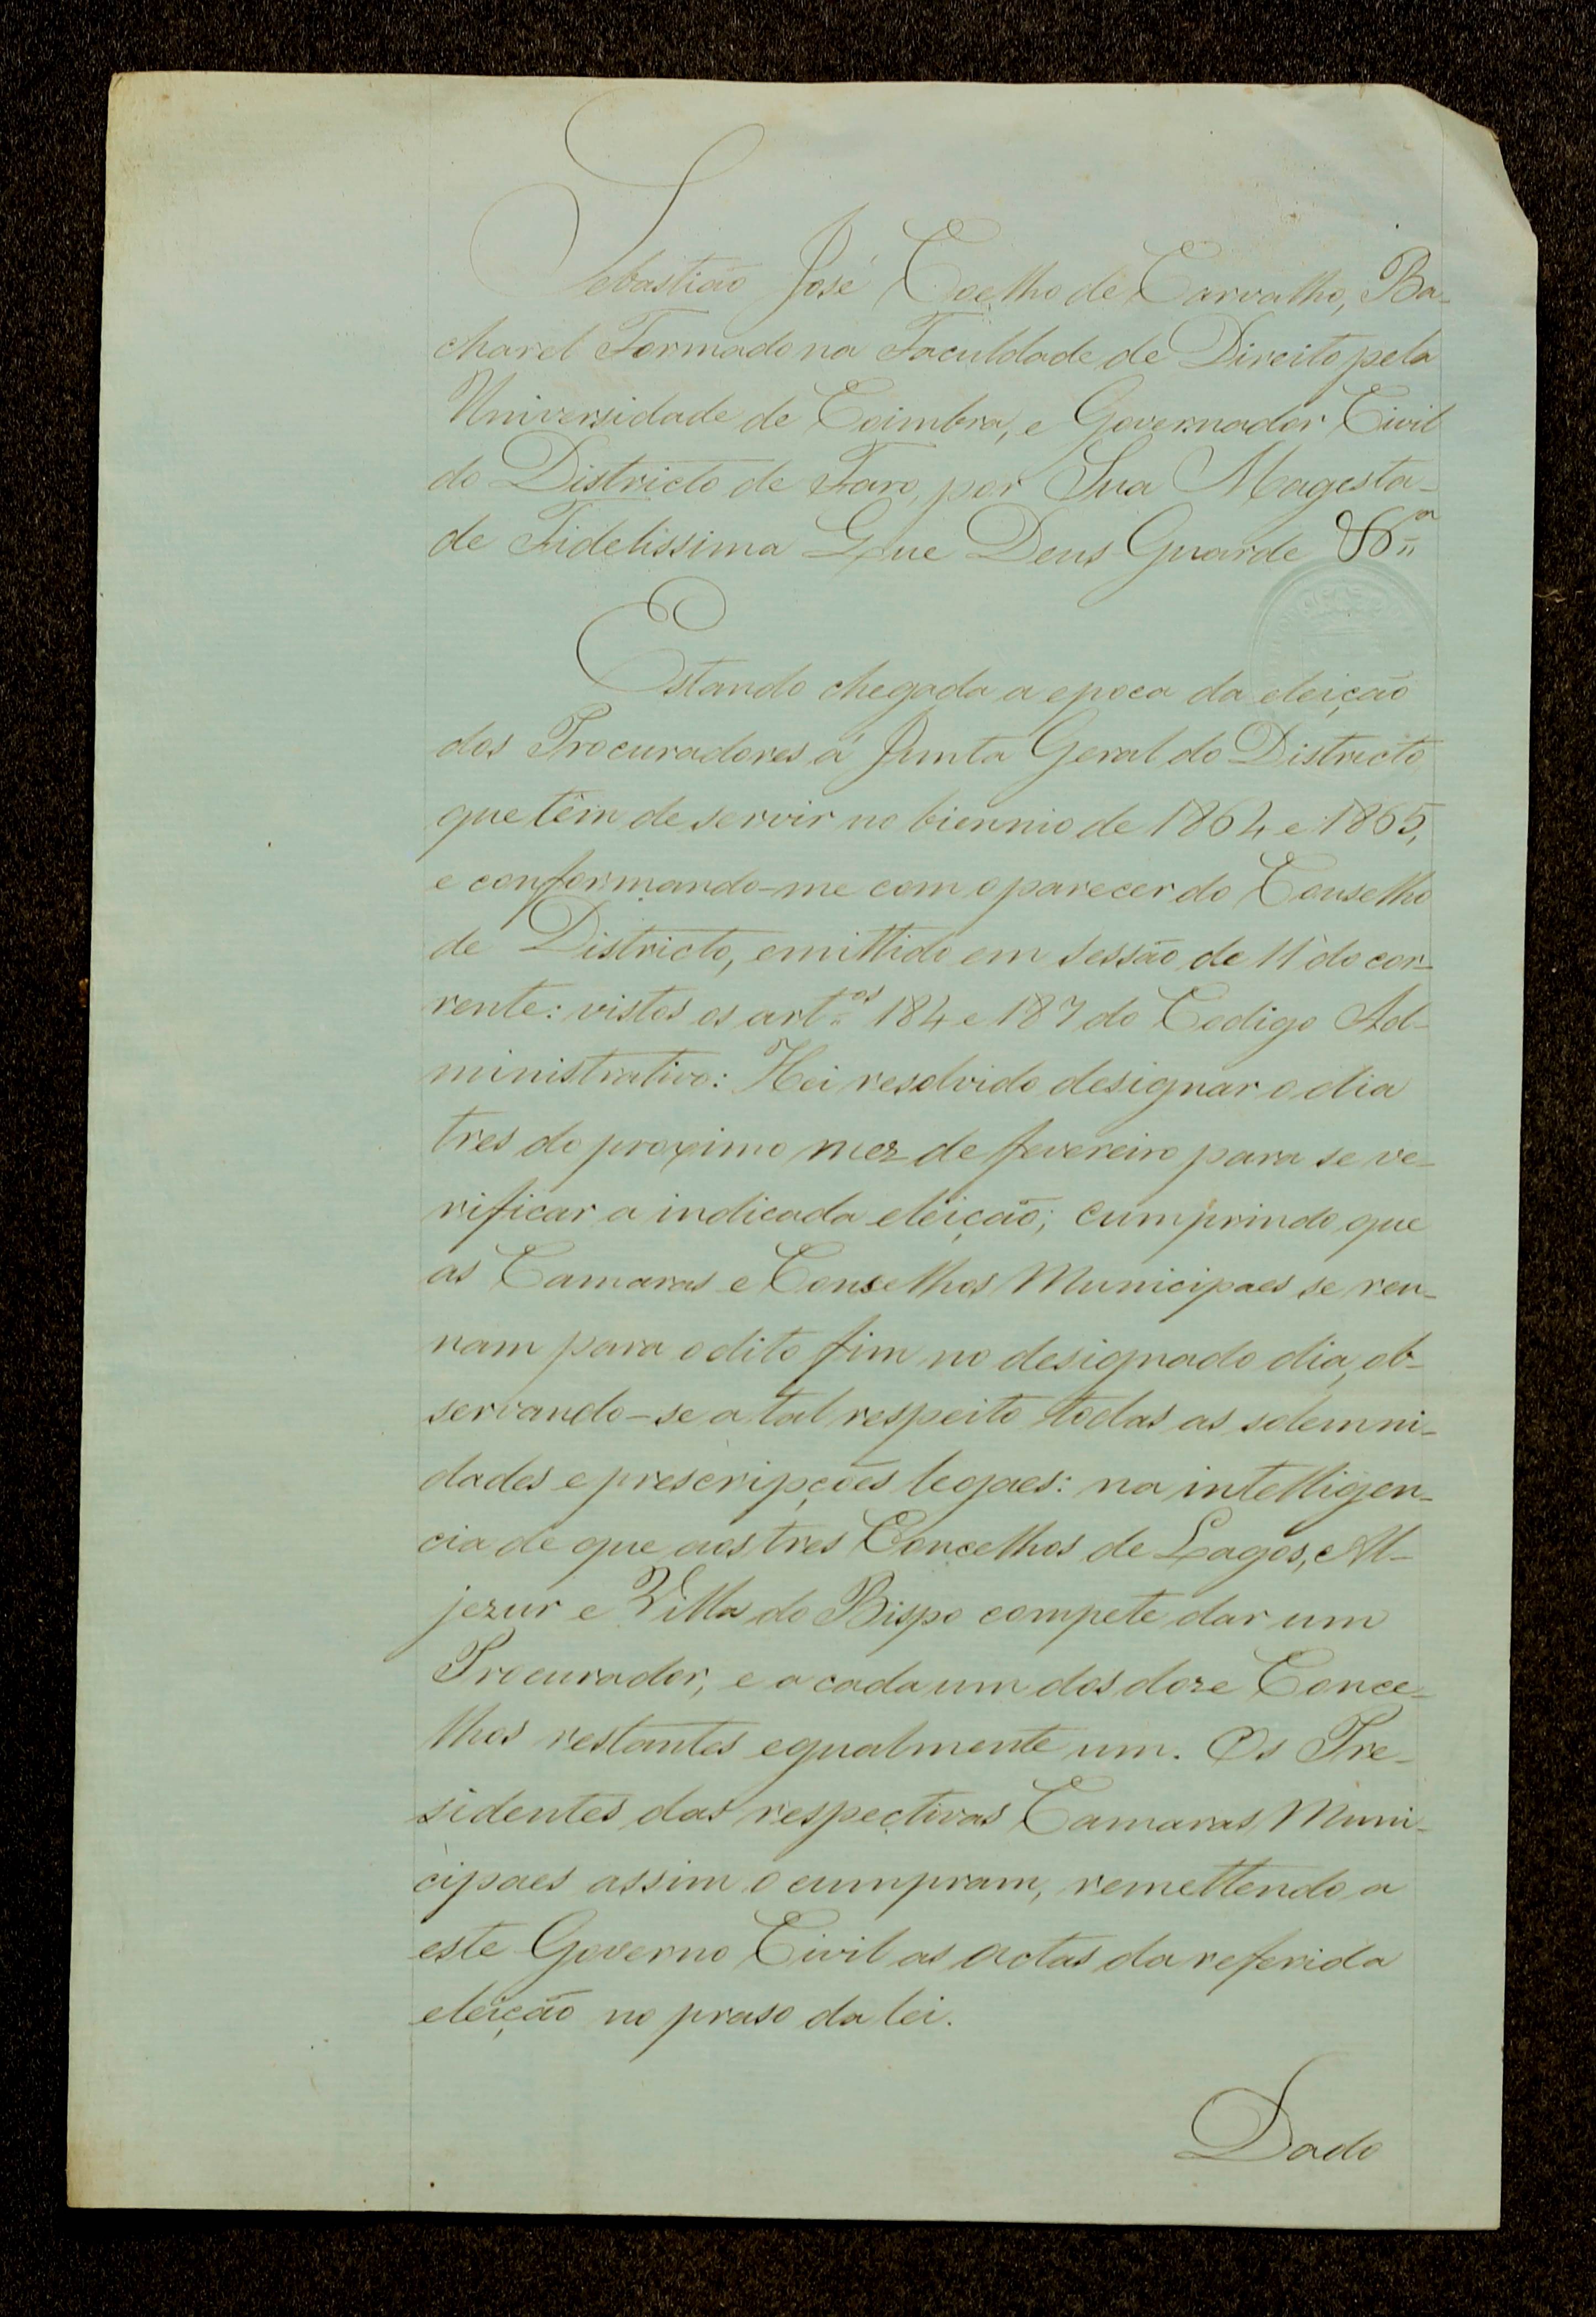 Sebastião José Coelho de Carvalho, Ba-
charel Formado na Faculdade de Direito pela
Universidade de Coimbra, e Governador Civil
do Districto de Faro, por Sua Magesta-
de Fidelissima Que Deus Guarde &ª
Estando chegada a epoca da eleição
dos Procuradores á Junta Geral do Districto
que têm de servir no biennio de 1864 e 1865,
e conformando-me com o parecer do Conselho
de Districto, emittido em sessão de 11 do cor-
rente: vistos os art.os 184 e 187 do Codigo Ad-
ministrativo: Hei resolvido designar o dia
tres do proximo mez de fevereiro para se ve-
rificar a indicada eleição; cumprindo que
as Camaras e Conselhos Municipaes se reu-
nam para o dito fim no designado dia, ob-
servando-se a tal respeito todas as solemni-
dades e prescripções legaes: na intelligen-
cia de que aos tres Concelhos de Lagos, Al-
jezur e Villa do Bispo compete dar um
Procurador, e a cada um dos doze Conce-
lhos restantes egualmente um. Os Pre-
sidentes das respectivas Camaras Muni-
cipaes assim o cumpram, remettendo a
este Governo Civil as actas da referida
eleição no praso da lei.
Dado